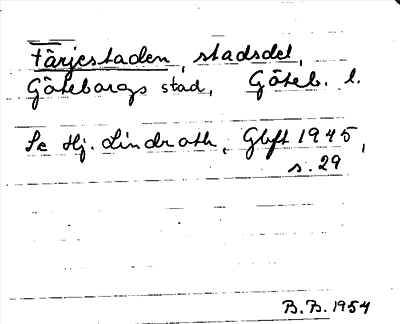 Färjestaden, stadsdel,
Göteborgs stad, Göteb. l.
Se Hj. Lindroth, Gbft 1945,
s. 29
B. B. 1954